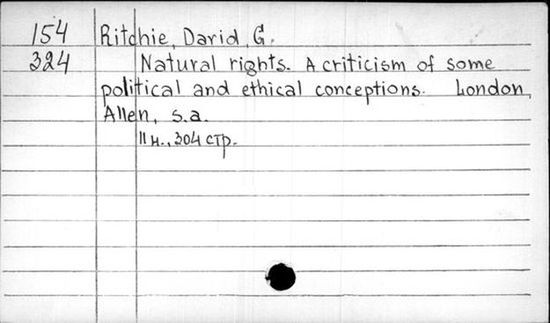 154 Ritchie, David, G.
324 Natural rights. A criticism of some
political and ethical conceptions. London,
Allen, s.a.
11 н., 304 стр.